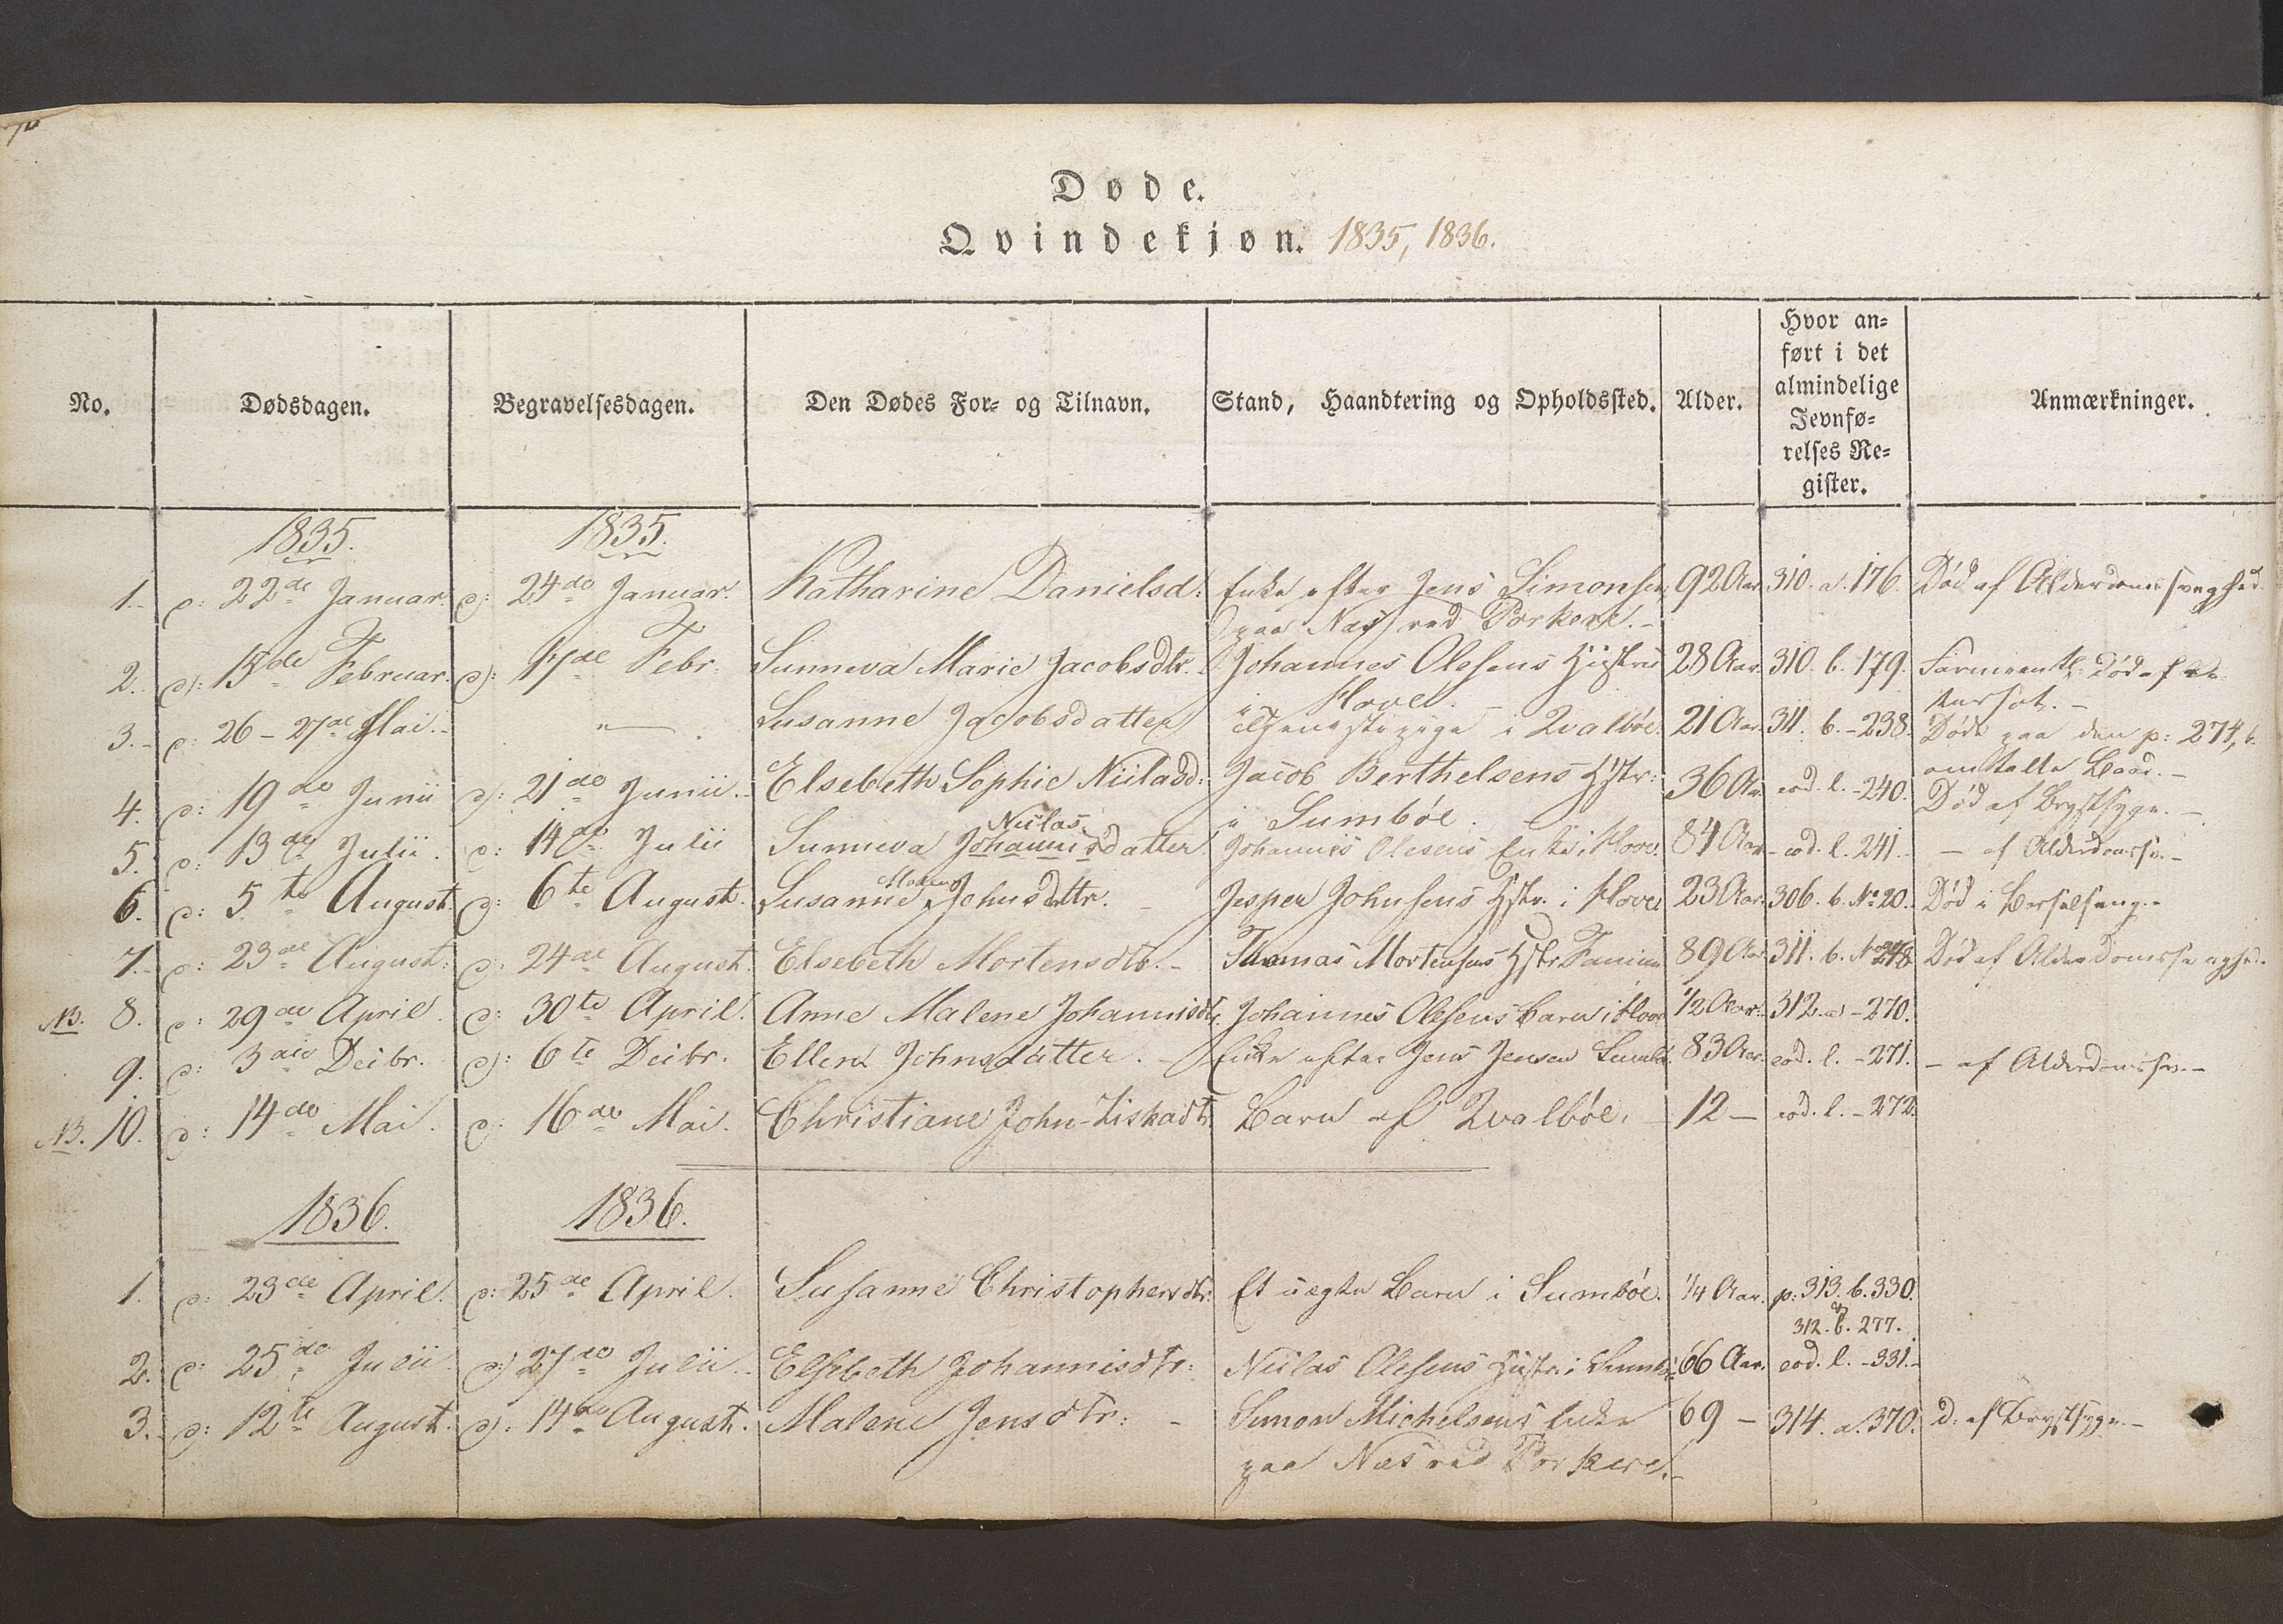 Døde.
Qvindekjøn. 1835, 1836.
No. Dødsdagen. Begravelsesdagen. Den Dødes For- og Tilnavn. Stand, Haandtering og Opholdssted. Alder. Hvor an-
ført i det
almindelige
Jevnfø-
relses Re-
gister. Anmærkninger.
1835. 1835.
1. d: 22de Januar. d: 24de Januar. Katharine Danielsd: Enke efter Jens Simonsen 92 Aar 310. a. 176. Død af Alderdomssvaghed.
paa Næs ved Porkere.
2. d: 15de Februar. d: 17de Febr. Sunneva Marie Jacobsdtr. Johannes Olesens Hustru 28 Aar 310. b. 179. Død af
i Hove.
3. d: 26-27de Mai. " Susanne Jacobsdatter Tjenestepige i Qvalbøe. 21 Aar 311. b. - 238. Døde paa den p: 274, b.
omtalte Baad.
4. d: 19de Junii d: 21de Junii. Elsebeth Sophie Niilasd: Jacob Berthelsens Hstr: 36 Aar eod. l. - 240. Død af Brystsyge.
i Sumbøe.
5. d: 13de Julii. d: 14de Julii Sunneva Johannisdatter Niilas Johannis Olesens Enke i Hove. 84 Aar eod. l. 241. - af Alderdomssv.
6. d: 5te August. d: 6te August. Susanne Malene Johnsdttr. Jesper Johnsens Hstr. i Hove 23 Aar 306. b. No 20. Død i Barselseng.
7. d: 23de August. d: 24de August. Elsebeth Mortensdtr. Thomas Mortensens Hstr Famien 89 Aar 311. b. No 248 Død af Alderdomssvaghed.
NB. 8. d: 29de April. d: 30te April. Anne Malene Johannisdtr. Johannes Olesens Barn i Hove 1/2 Aar. 312. a - 270.
9. d: 3die Decbr. d: 6te Decbr. Ellen Johnsdatter. Enke efter Jens Jensen Sumbø 83 Aar. eod. l. - 271. - af Alderdomssv.
NB. 10. d: 14de Mai. d: 16de Mai. Christiane John-Liskadtr Barn af Qvalbøe. 12 - eod. l. - 272.
1836. 1836.
1. d: 23de April. d: 25de April. Susanne Christophersdtr: Et uegte Barn i Sumbøe. 1/4 Aar. p: 313. b. 330.
312. b. 277.
2. d: 25de Julii. d: 27de Julii. Elsebeth Johannisdtr: Niilas Olesens Hustr. i Sumbø 66 Aar. eod. l. - 331.
3. d: 12te August. d: 14de August. Malene Jensdtr: Simon Michelsens Enke 69 - 314. a. 370. d: af Brystsyge
paa Næs ved Porkere.